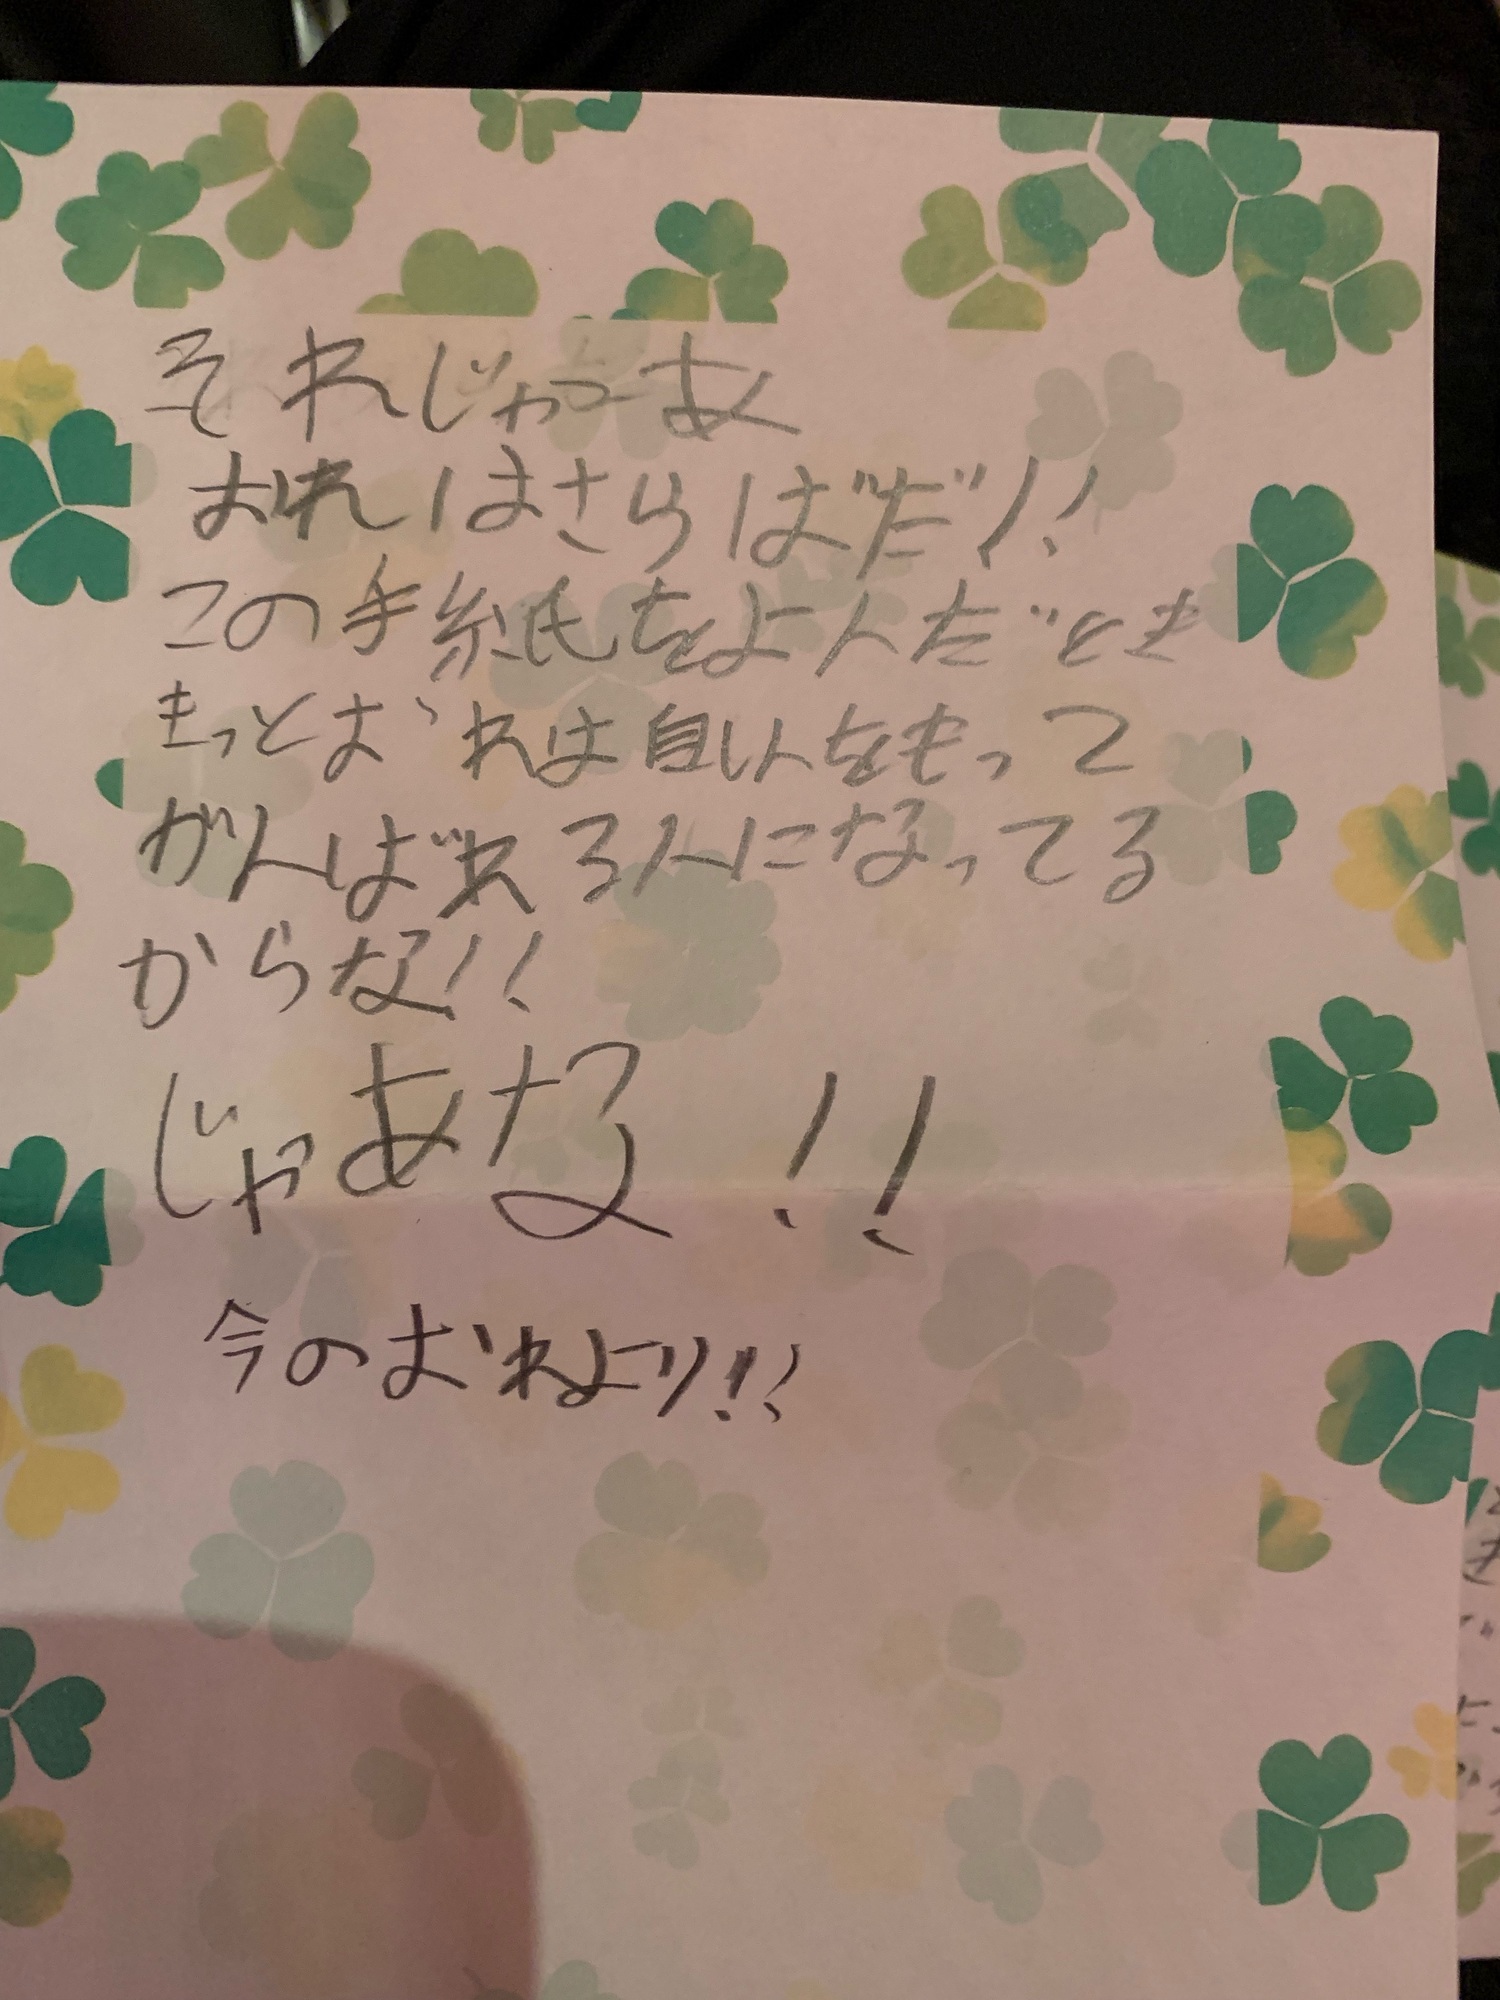 それじゃーあ
おれはさらばだ!!
この手紙をよんだとき
きっとおれは自しんをもって
がんばれる人になってる
からな!!
じゃあな!!
今のおれより!!